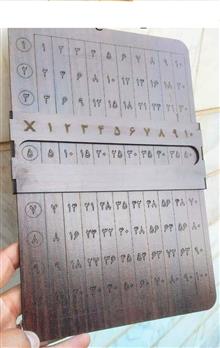 ۱ ۱ ۲ ۳ ۴ ۵ ۶ ۷ ۸ ۹ ۱۰
۲ ۲ ۴ ۶ ۸ ۱۰ ۱۲ ۱۴ ۱۶ ۱۸ ۲۰
۳ ۳ ۶ ۹ ۱۲ ۱۵ ۱۸ ۲۱ ۲۴ ۲۷ ۳۰
X ۱ ۲ ۳ ۴ ۵ ۶ ۷ ۸ ۹ ۱۰
۵ ۵ ۱۰ ۱۵ ۲۰ ۲۵ ۳۰ ۳۵ ۴۰ ۴۵ ۵۰
۷ ۷ ۱۴ ۲۱ ۲۸ ۳۵ ۴۲ ۴۹ ۵۶ ۶۳ ۷۰
۸ ۸ ۱۶ ۲۴ ۳۲ ۴۰ ۴۸ ۵۶ ۶۴ ۷۲ ۸۰
۹ ۹ ۱۸ ۲۷ ۳۶ ۴۵ ۵۴ ۶۳ ۷۲ ۸۱ ۹۰
۱۰ ۲۰ ۳۰ ۴۰ ۵۰ ۶۰ ۷۰ ۸۰ ۹۰ ۱۰۰